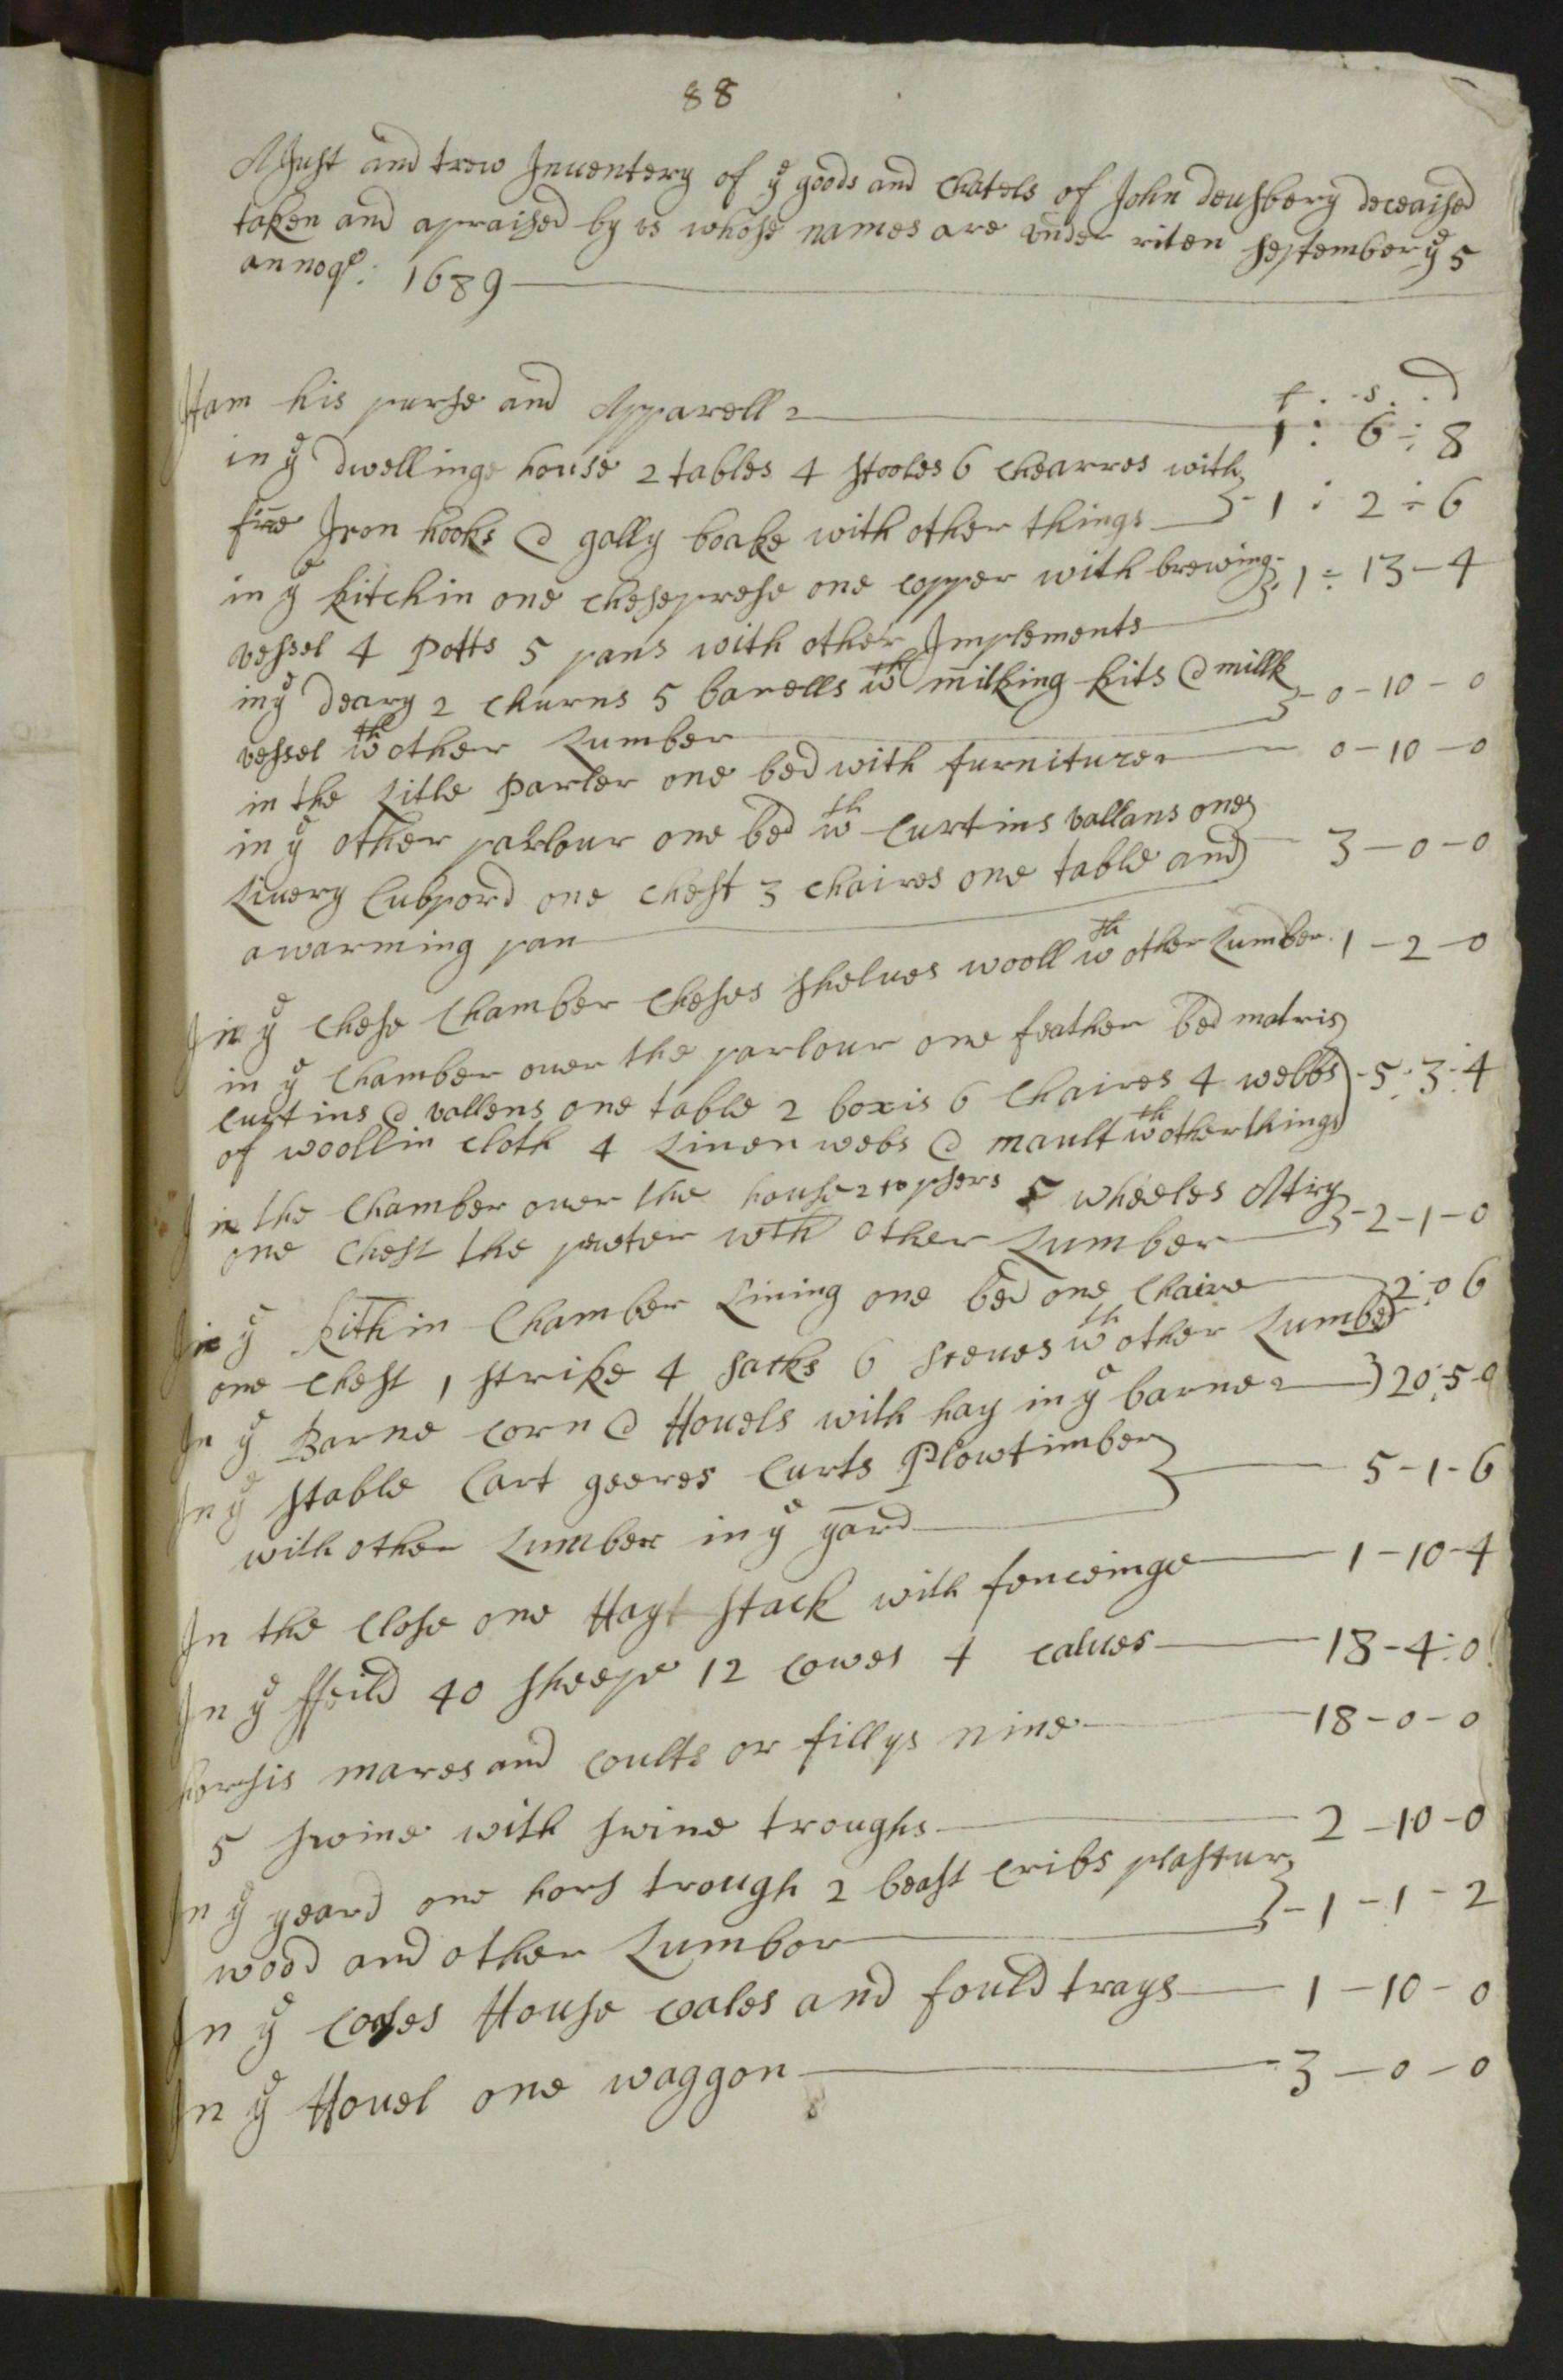 88
A Just and trew Inventery of yᵉ goods and Chatels of John deushbery deceaised
taken and apraised by us whose names are under riten september yᵉ 5
1689
£ . s . d
Itam his purse and Apparell 1 : 6 : 8
in yᵉ dwellinge house 2 tables 4 stooles 6 chearres with
fire Iron hooks & gally boake with other things 1 : 2 : 6
in yᵉ kitchin one cheseprese one copper with brewing 1 : 13 - 4
vessel 4 Potts 5 pans with other Implements
in yᵉ deary 2 churns 5 barells wᵗʰ milking kits & millk 0 - 10 - 0
vessel wᵗʰ other Lumber
in the Litle Parler one bed with furniture 0 - 10 - 0
in yᵉ other parlour one bed wᵗʰ Curtins vallans one
Livery Cubpord one Chest 3 chaires one table and 3 - 0 - 0
a warming pan
In yᵉ Chese Chamber Cheses shelves wooll wᵗʰ other Lumber 1 - 2 - 0
in yᵉ Chamber over the parlour one feather bed matris
curtins & vallens one table 2 boxis 6 Chaires 4 webbs 5 : 3 : 4
of woollin cloth 4 Linen webs & mault wᵗʰ other things
In the Chamber over the house 2 5 wheeles
one Chest the pewter wth other Lumber 2 - 1 - 0
In yᵉ kithin Chamber Lining one bed one Chaire 2 : 0 6
one Chest 1 strike 4 sacks 6 seeves wᵗʰ other Lumber
In yᵉ Barne corn & Hovels with hay in yᵉ barne 20 : 5 - 0
In yᵉ stable Cart geeres Carts Plowtimber 5 - 1 - 6
with other Lumber in yᵉ yard
In the Close one Hay stack with fenceinge 1 - 10 - 4
In yᵉ ffeild 40 sheepe 12 cowes 4 calves 18 - 4 : 0
horsis mares and coults or fillys nine 18 - 0 - 0
5 swine with swine troughs 2 - 10 - 0
In yᵉ yeard one hors trough 2 beast cribs plastur 1 - 1 - 2
wood and other Lumbor
In yᵉ Coales House coales and fould trays 1 - 10 - 0
In yᵉ Hovel one waggon 3 - 0 - 0